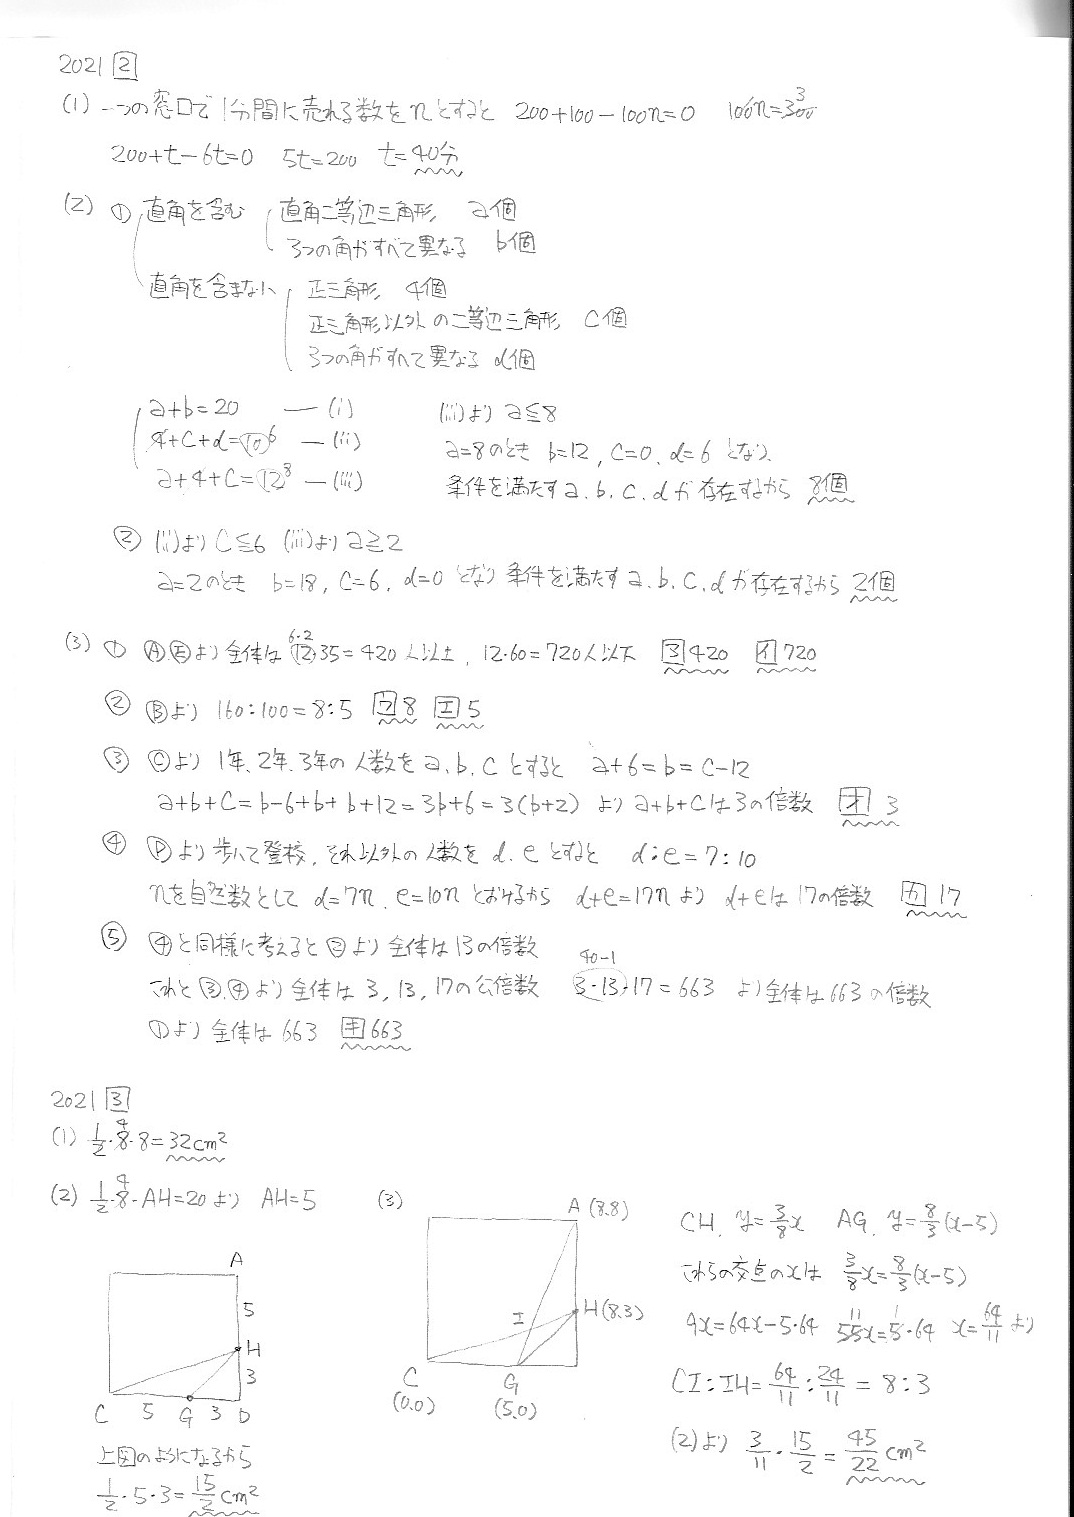 2021 [2]
(1) 一つの窓口で1分間に売れる数をnとすると 200+100-100n=0 100n=300 3
200+t-6t=0 5t=200 t=40分
(2) ① 直角を含む 直角二等辺三角形 a個
3つの角がすべて異なる b個
直角を含まない 正三角形 4個
正三角形以外の二等辺三角形 c個
3つの角がすべて異なる d個
a+b=20 — (i) (iii)より a≦8
4+c+d=10 6 — (ii) a=8のとき b=12, c=0, d=6 となり、
a+4+c=12 8 — (iii) 条件を満たすa.b.c.dが存在するから 8個
② (ii)より c≦6 (iii)より a≧2
a=2のとき b=18, c=6, d=0 となり 条件を満たすa.b.c.dが存在するから 2個
6・2
(3) ① Ⓐ Ⓔより全体は 12・35=420人以上, 12・60=720人以下 [ア]420 [イ]720
② Ⓑより 160:100=8:5 [ウ]8 [エ]5
③ Ⓒより 1年、2年、3年の人数をa.b.cとすると a+6=b=c-12
a+b+c=b-6+b+b+12=3b+6=3(b+2) より a+b+cは3の倍数 [オ] 3
④ Ⓓより歩いて登校, それ以外の人数を d.e とすると d:e=7:10
nを自然数として d=7n, e=10n とおけるから d+e=17n より d+eは17の倍数 [カ] 17
⑤ ④と同様に考えると Ⓔより全体は13の倍数
40-1
これと③.④より 全体は 3, 13, 17の公倍数 3・13・17=663 より全体は663の倍数
①より 全体は 663 [キ]663
2021 [3]
(1) 1/2・8・8=32cm² 4
(2) 1/2・8・AH=20より AH=5 4
A
5
H
3
C 5 G 3 D
上図のようになるから
1/2・5・3=15/2cm²
(3)
A (8.8)
H(8.3)
I
C G
(0.0) (5.0)
CH, y=3/8x AG, y=8/3(x-5)
これらの交点のxは 3/8x=8/3(x-5)
9x=64x-5・64 55x=5・64 11 1 x=64/11 より
CI:IH=64/11:24/11=8:3
(2)より 3/11・15/2=45/22cm²